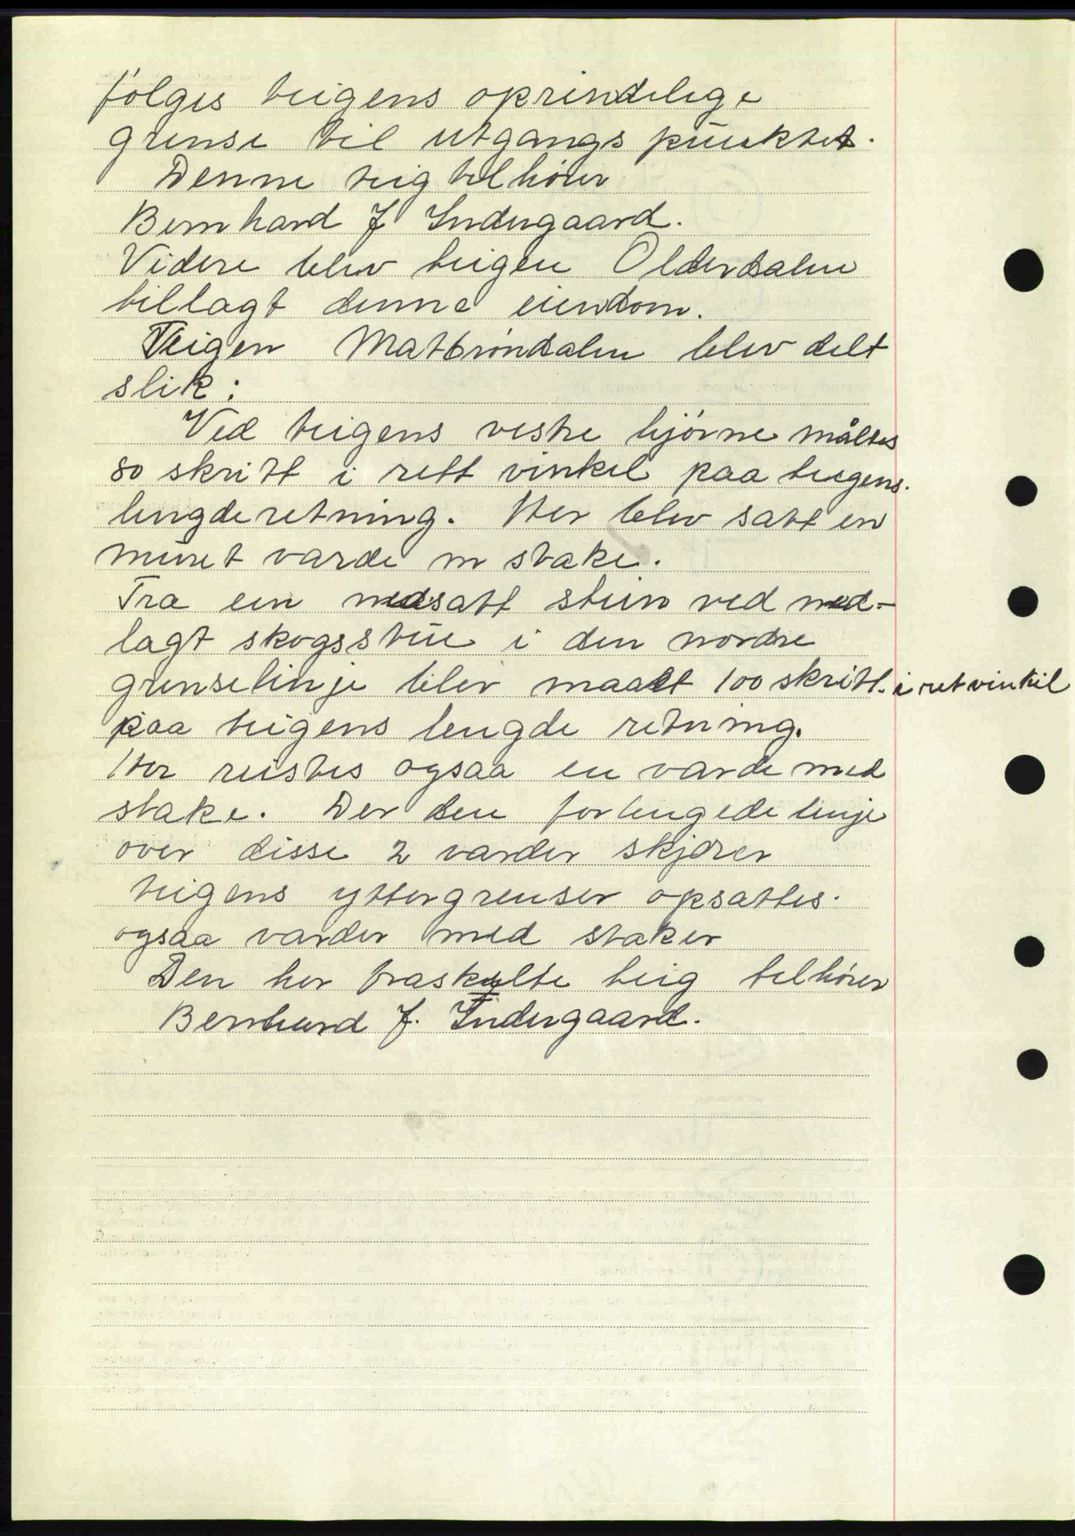 følges teigens oprindelige
grense til utgangspunktet.
Denne teig tilhører
Bernhard J Indergaard.
Videre blev teigen Olderdalen
tillagt denne eiendom.
Teigen Matbrøndalen blev delt
slik:
Ved teigens vestre hjørne måltes
80 skritt i rett vinkel paa teigens
lengderetning. Her blev satt en
muret varde m stake.
Fra ein nedsatt stein ved ned-
lagt skogsstue i den nordre
grenselinje blev maalt 100 skritt i ret vinkil
paa teigens lengde retning.
Her reistes ogsaa en varde med
stake. Der den forlengede linje
over disse 2 varder skjærer
teigens yttergrenser opsattes
ogsaa varder med staker
Den her fraskylte teig tilhører
Bernhard J. Indergaard.